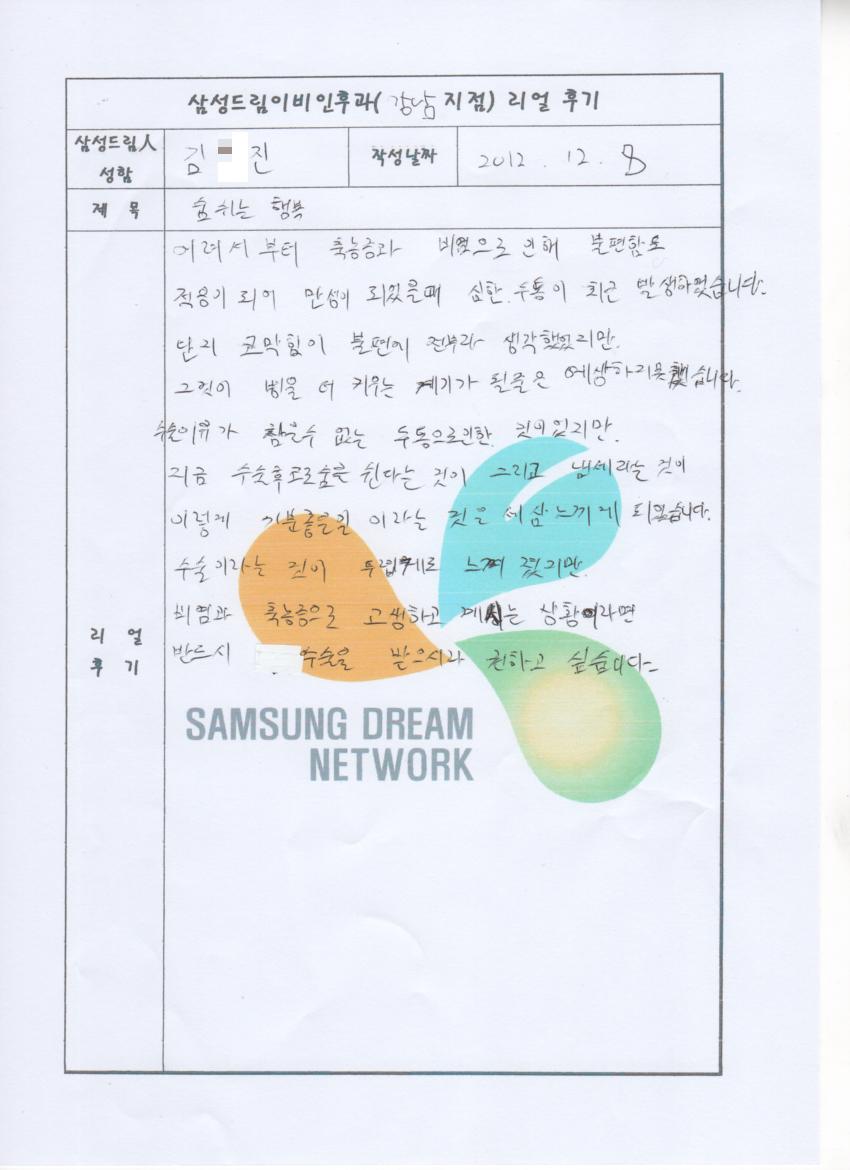 삼성드림이비인후과( 강남 지점) 리얼 후기
삼성드림人 성함
김 진
작성날짜
2012. 12. 8
제 목
숨쉬는 행복
어려서 부터 축농증과 비염으로 인해 불편함도
적응기 되어 만성이 되었을때 심한 두통이 최근 발생하였습니다.
단지 코막힘이 불편에 전부라 생각했었지만.
그것이 병을 더 키우는 계기가 될줄은 예상하지못했습니다.
수술이유가 참을수 없는 두통으로인한 것이었지만.
지금 수술후코로숨을 쉰다는 것이 그리고 냄세라는 것이
이렇게 기분좋은일 이라는 것을 세삼느끼게 되었습니다.
수술이라는 것이 두렵게로 느껴 졌지만.
비염과 축농증으로 고생하고 계시는 상황이라면
반드시 수술을 받으시라 권하고 싶습니다-
리 얼
후 기
SAMSUNG DREAM
NETWORK